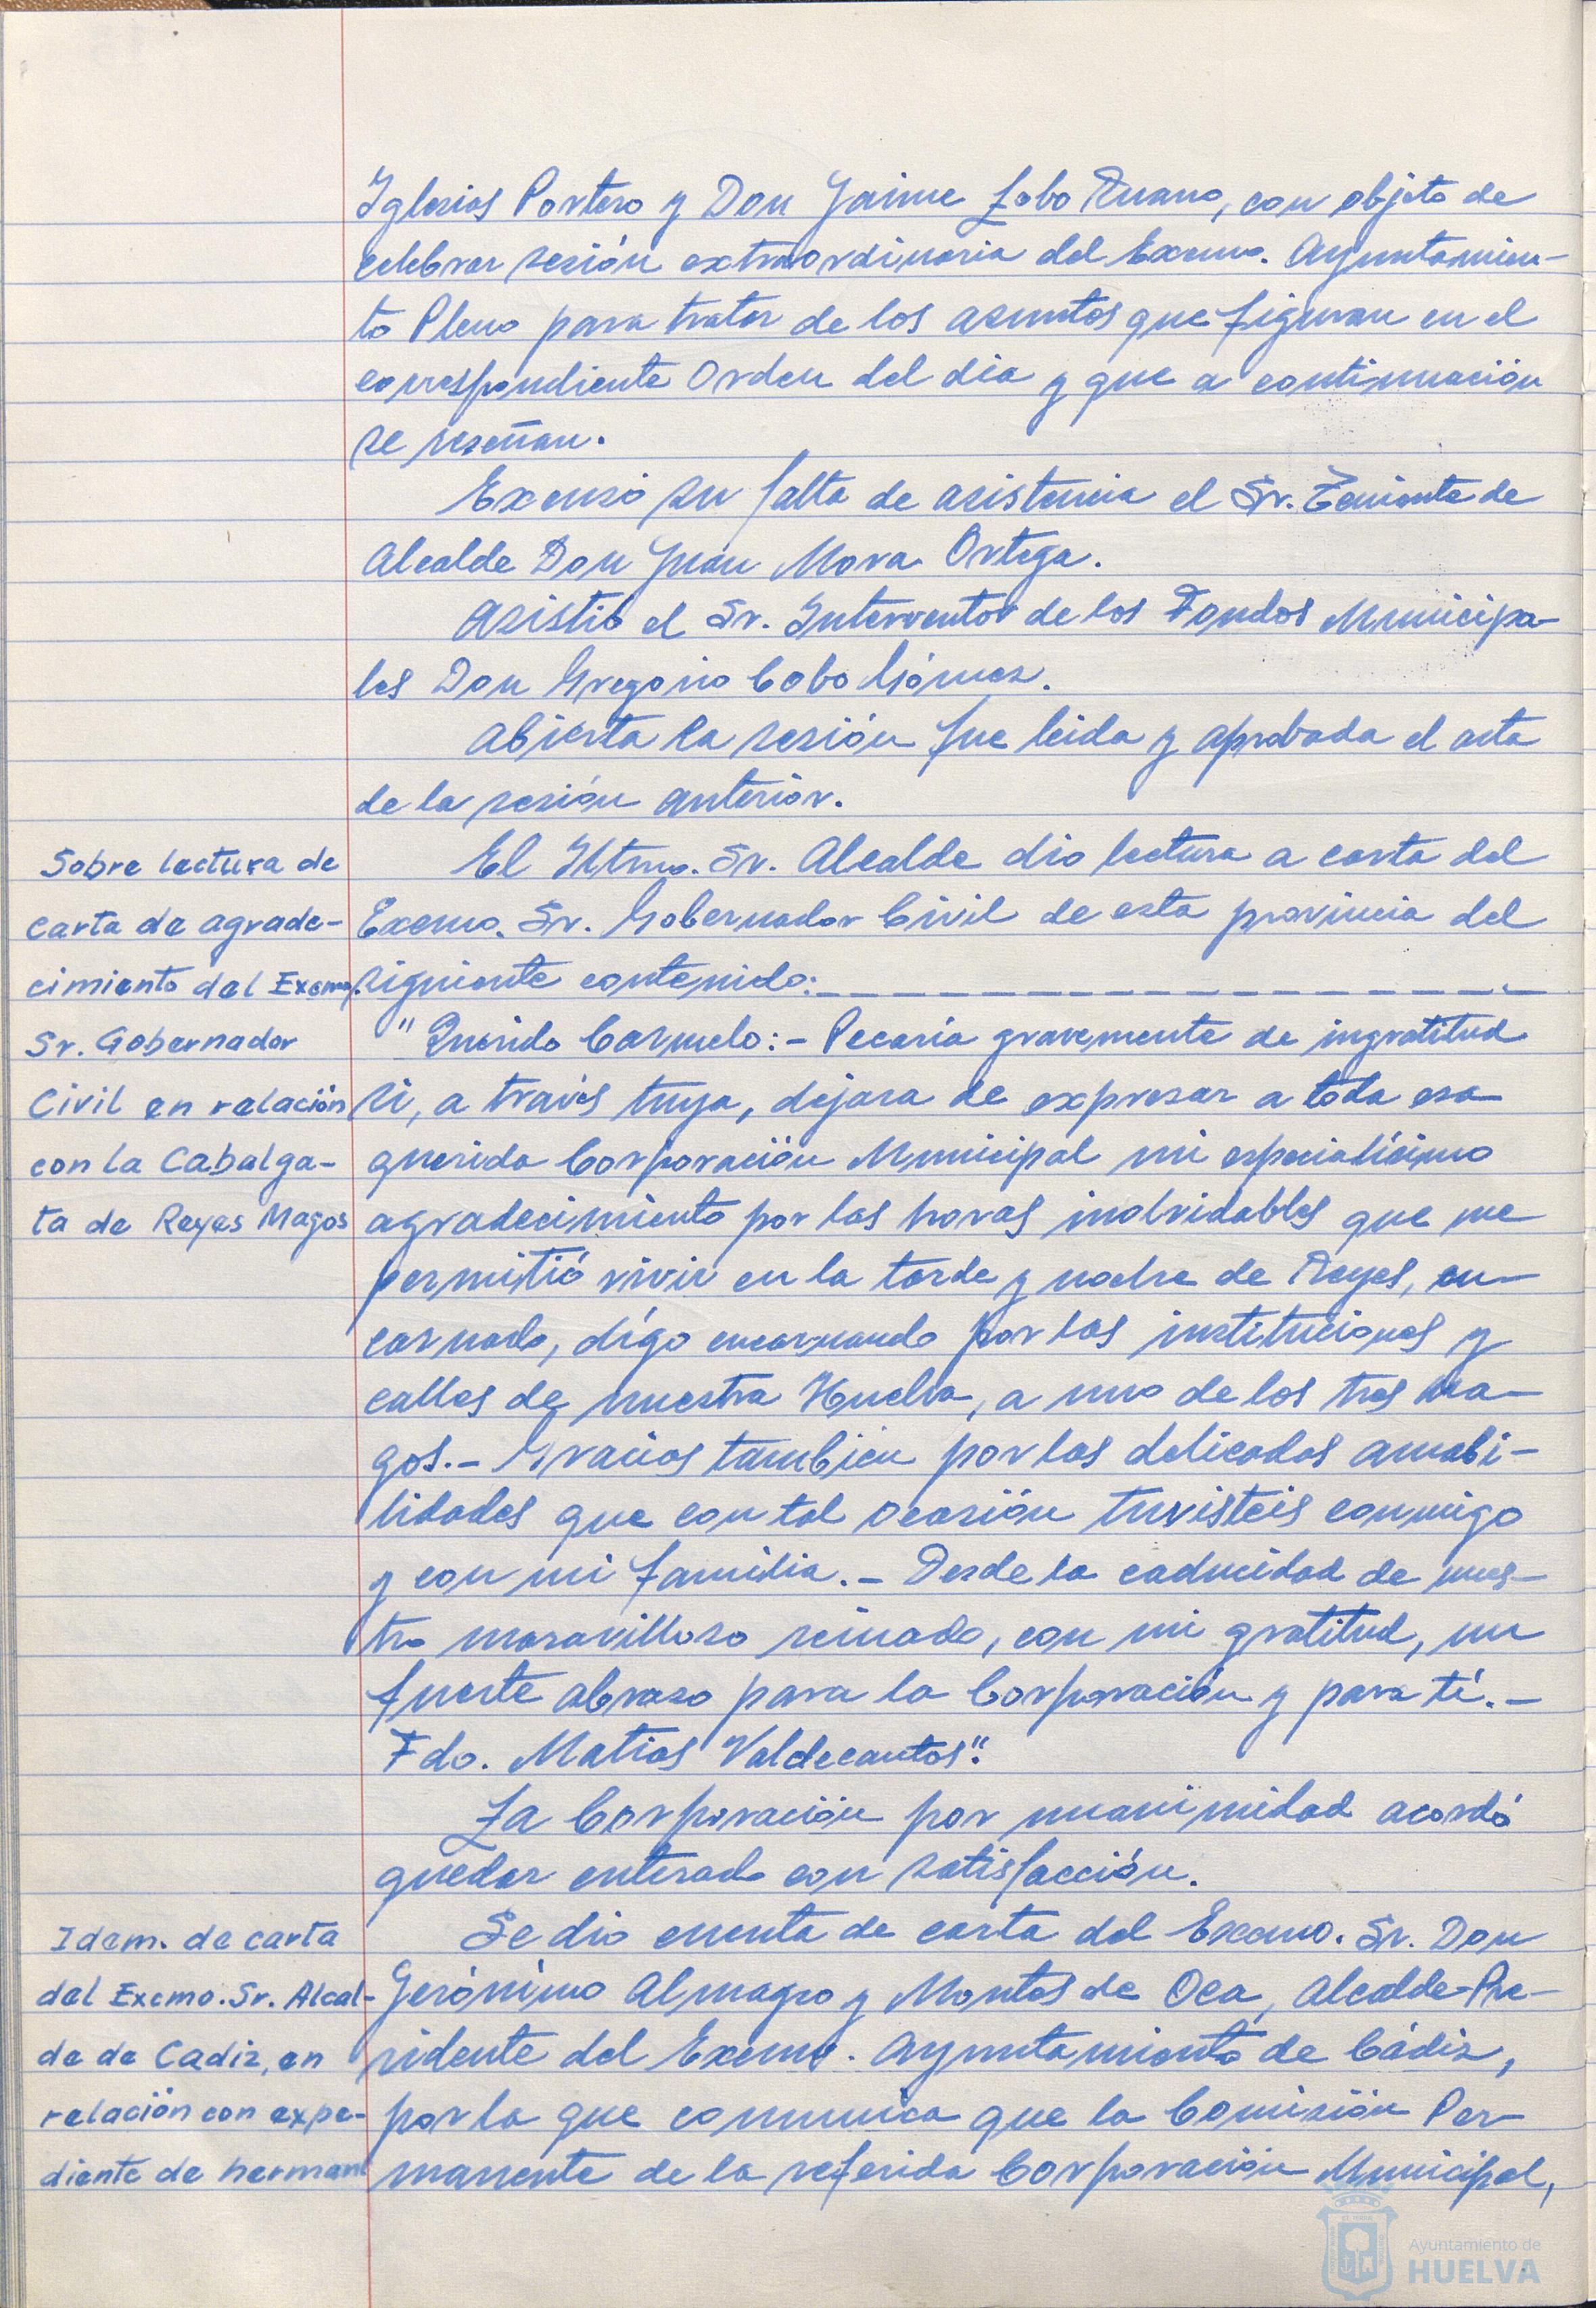 Iglesias Portero y Don Jaime Lobo Ruano, con objeto de
celebrar sesión extraordinaria del Excmo. Ayuntamien-
to Pleno para tratar de los asuntos que figuran en el
correspondiente Orden del dia y que a continuación
se reseñan.
Excusó su falta de asistencia el Sr. Teniente de
Alcalde Don Juan Mora Ortega.
Asistió el Sr. Interventor de los Fondos Municipa-
les Don Gregorio Cobo Gómez.
Abierta la sesión fue leida y aprobada el acta
de la sesión anterior.
Sobre lectura de
carta de agrade-
cimiento del Excmo.
Sr. Gobernador
Civil en relación
con la Cabalga-
ta de Reyes Magos
El Iltmo. Sr. Alcalde dio lectura a carta del
Excmo. Sr. Gobernador Civil de esta provincia del
siguiente contenido:
"Querido Carmelo:- Pecaría gravemente de ingratitud
si, a través tuya, dejara de expresar a toda esa
querida Corporación Municipal mi especialísimo
agradecimiento por las horas inolvidables que me
permitió vivir en la tarde y noche de Reyes, en-
carnado, dígo encarnando por las instituciones y
calles de nuestra Huelva, a uno de los tres Ma-
gos.- Gracias tambien por las delicadas amabi-
lidades que con tal ocasión tuvisteis conmigo
y con mi familia.- Desde la caducidad de nues-
tro maravilloso reinado, con mi gratitud, un
fuerte abrazo para la Corporación y para tí.-
Fdo. Matias Valdecantos".
La Corporación por unanimidad acordó
quedar enterada con satisfacción.
Idem. de carta
del Excmo. Sr. Alcal-
de de Cadiz, en
relación con expe-
diente de hermana
Se dio cuenta de carta del Excmo. Sr. Don
Gerónimo Almagro y Montes de Oca, Alcalde-Pre-
sidente del Excmo. Ayuntamiento de Cádiz,
por la que comunica que la Comisión Per-
manente de la referida Corporación Municipal,
Ayuntamiento de
HUELVA